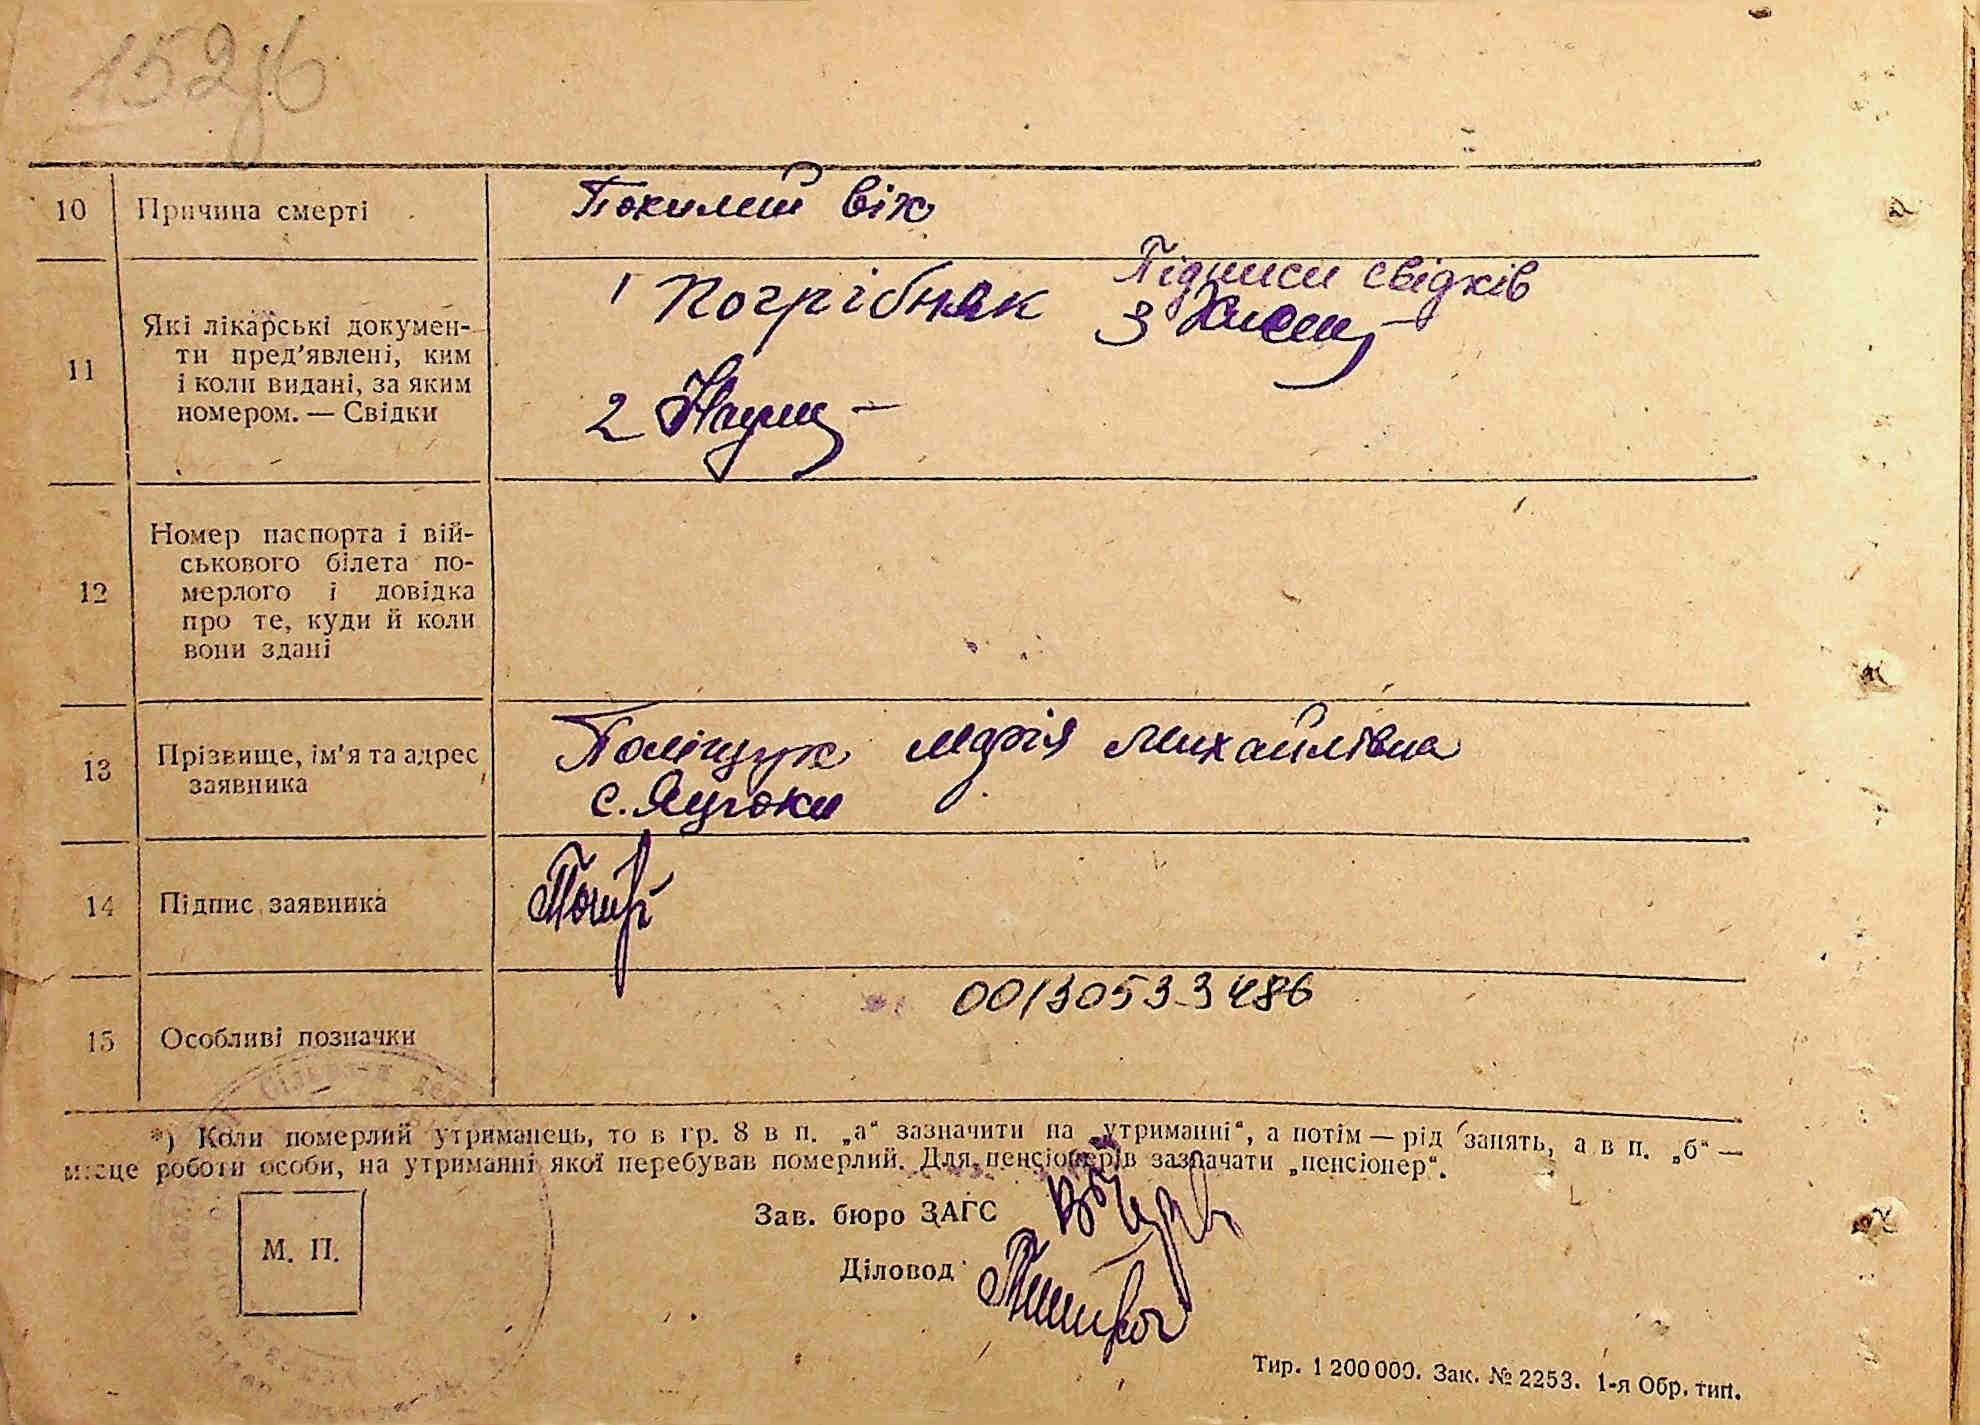 152/6
10 Причина смерті Похилий вік
Підписи свідків
11 Які лікарські докумен-
ти пред'явлені, ким
і коли видані, за яким
номером. — Свідки
1 Погрібняк 3
2
12 Номер паспорта і вій-
ськового білета по-
мерлого і довідка
про те, куди й коли
вони здані
13 Прізвище, ім'я та адрес
заявника
Поліщук Марія Михайлівна
с. Яцюки
14 Підпис заявника
00130533486
15 Особливі позначки
*) Коли померлий утриманець, то в гр. 8 в п. „а“ зазначити на „утриманні“, а потім — рід занять, а в п. „б“ —
місце роботи особи, на утриманні якої перебував померлий. Для пенсіонерів зазначати „пенсіонер“.
Зав. бюро ЗАГС
М. П.
Діловод
Тир. 1 200 000. Зак. № 2253. 1-я Обр. тип.